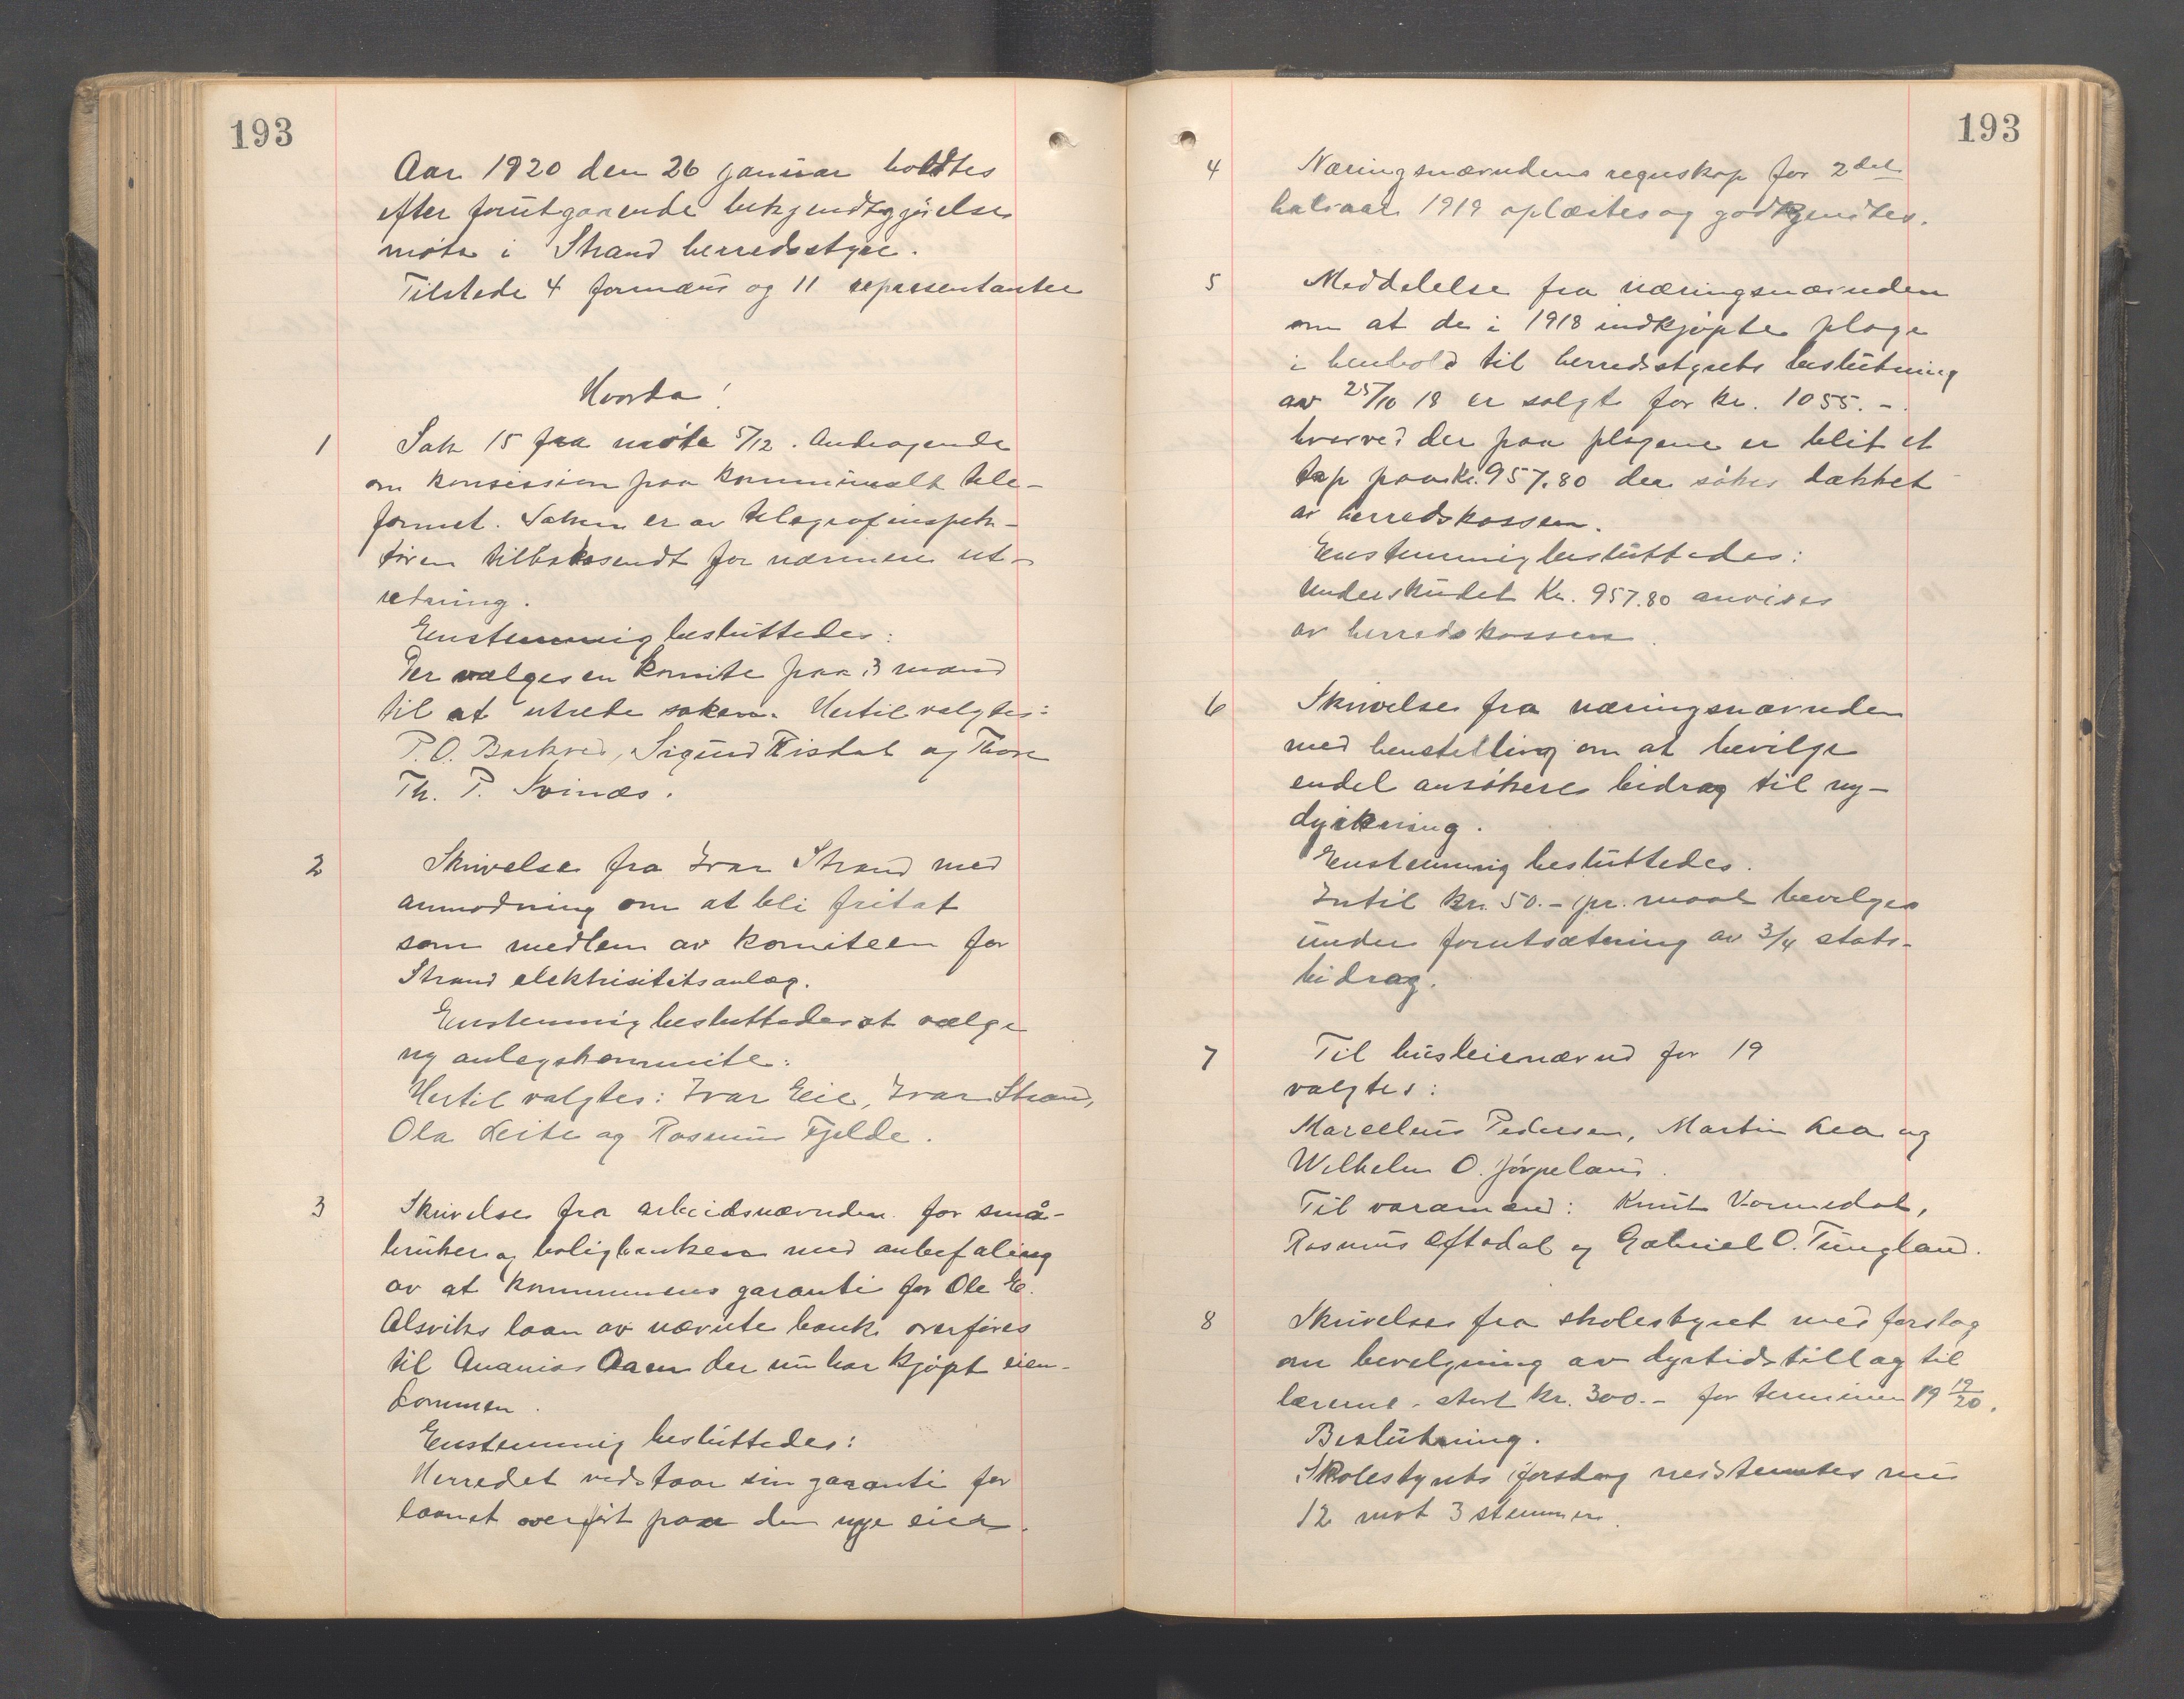 193
Aar 1920 den 26 januar holdtes
efter forutgaaende bekjendtgjørelse
møte i Strand herredsstyre.
Tilstede 4 formænd og 11 representanter
Hvorda!
1 Sak 15 fra møte 5/12. Andragende
om konsession paa kommunalt tele-
fonnet. Saken er av telegrafinspek-
tøren tilbakesendt for nærmere ut-
retning.
Enstemmig besluttedes:
Der vælges en komite paa 3 mand
til at utrede saken. Hertil valgtes:
P. O. Barkved, Sigurd Risdal og Thore
Th. P. Svinæs.
2 Skrivelse fra Ivar Strand med
anmodning om at bli fritat
som medlem av komiteen for
Strand elektrisitetsanlæg.
Enstemmig besluttedes at vælge
ny anlegskommite:
Hertil valgtes: Ivar Eie, Ivar Strand,
Ola Leite og Rasmus Fjelde.
3 Skrivelse fra arbeidsnævnden for små-
bruker og boligbanken med anbefaling
av at kommunens garanti for Ole E.
Alsviks laan av nævnte bank overføres
til Ananias Aaen der nu har kjøpt eien-
dommen.
Enstemmig besluttedes:
Herredet vedstaar sin garanti for
laanet overført paa den nye eier.
193
4 Næringsnævndens regnskap for 2det
halvaar 1919 oplæstes og godkjendtes.
5 Meddelelse fra næringsnævnden
om at de i 1918 indkjøpte ploge
i henhold til herredsstyrets beslutning
av 25/10 18 er solgt for kr. 1055.-
hvorved der paa plogene er blit et
tap paa kr. 957.80 der søkes dækket
av herredskassen.
Enstemmig besluttedes:
Underskudet Kr. 957.80 anvises
av herredskassen.
6 Skrivelse fra næringsnævnden
med henstilling om at bevilge
endel ansøkere bidrag til ny-
dyrkning.
Enstemmig besluttedes.
Intil kr. 50.- pr. maal bevilges
under forutsætning av 3/4 stats-
bidrag.
7 Til husleienævnd for 19
valgtes:
Marcelius Pedersen, Martin Lea og
Wilhelm O. Jørpeland.
Til varamænd: Knut Vormedal,
Rasmus Oftedal og Gabriel O. Tungland.
8 Skrivelse fra skolestyret med forslag
om bevilgning av dyrtidstillæg til
lærerne - stort kr. 300.- for terminen 19 19/20.
Beslutning.
Skolestyrets forslag nedstemtes med
12 mot 3 stemmer.